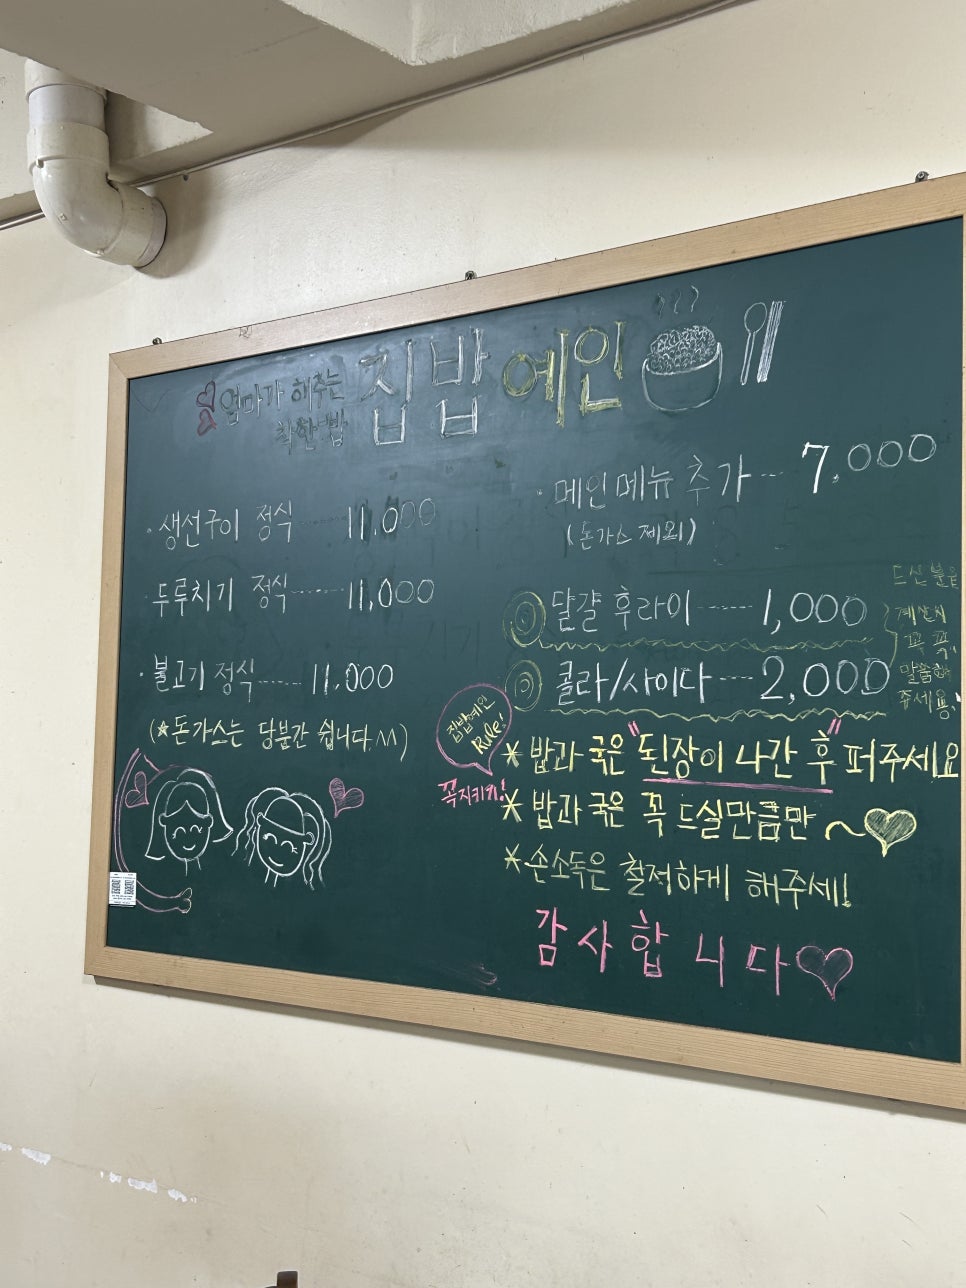 엄마가 해주는
착한 밥
집밥예인
· 생선구이 정식 ------ 11,000
· 두루치기 정식 ------ 11,000
· 불고기 정식 ------ 11,000
(*돈가스는 당분간 쉽니다.^^)
· 메인메뉴 추가 --- 7,000
(돈가스 제외)
달걀 후라이 ------ 1,000
콜라/사이다 ---- 2,000
드신 분은
계산시
꼭 꼭
말씀해
주세용
집밥예인
Rule!
꼭지키기!
* 밥과 국은 "된장이 나간 후" 퍼주세요
* 밥과 국은 꼭 드실만큼만~
* 손소독은 철저하게 해주세!
감사합니다